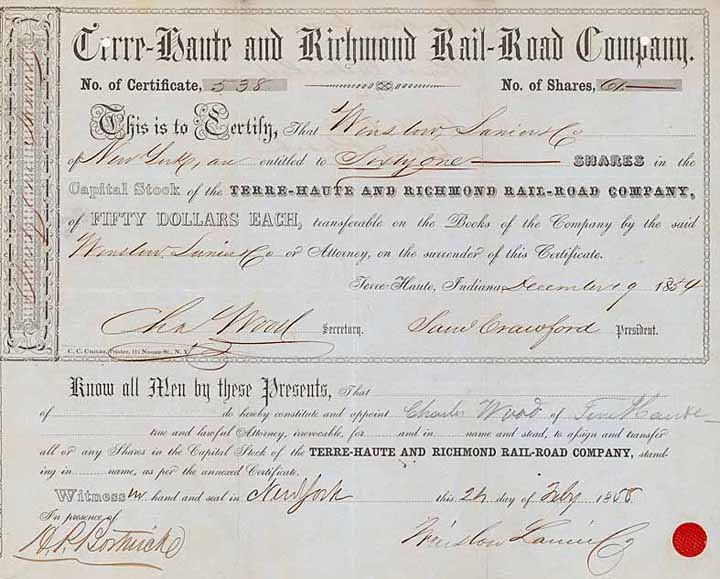 Terre-Haute and Richmond Rail-Road Company.
No. of Certificate, 538 No. of Shares, 61
This is to Certify, That Winslow Lanier & Co
of New York, are entitled to Sixty one SHARES in the
Capital Stock of the TERRE-HAUTE AND RICHMOND RAIL-ROAD COMPANY,
of FIFTY DOLLARS EACH, transferable on the Books of the Company by the said
Winslow Lanier & Co or Attorney, on the surrender of this Certificate.
Terre-Haute, Indiana December 9 1854
Chas Wood Secretary. Saml Crawford President.
C. C. Childs, Printer, 111 Nassau St., N. Y.
Know all Men by these Presents, That
of do hereby constitute and appoint Charles Wood of Terre Haute
true and lawful Attorney, irrevocable, for and in name and stead, to assign and transfer
all or any Shares in the Capital Stock of the TERRE-HAUTE AND RICHMOND RAIL-ROAD COMPANY, stand-
ing in name, as per the annexed Certificate.
Witness hand and seal in New York this 24 day of Feby 1858
In presence of
Winslow Lanier & Co